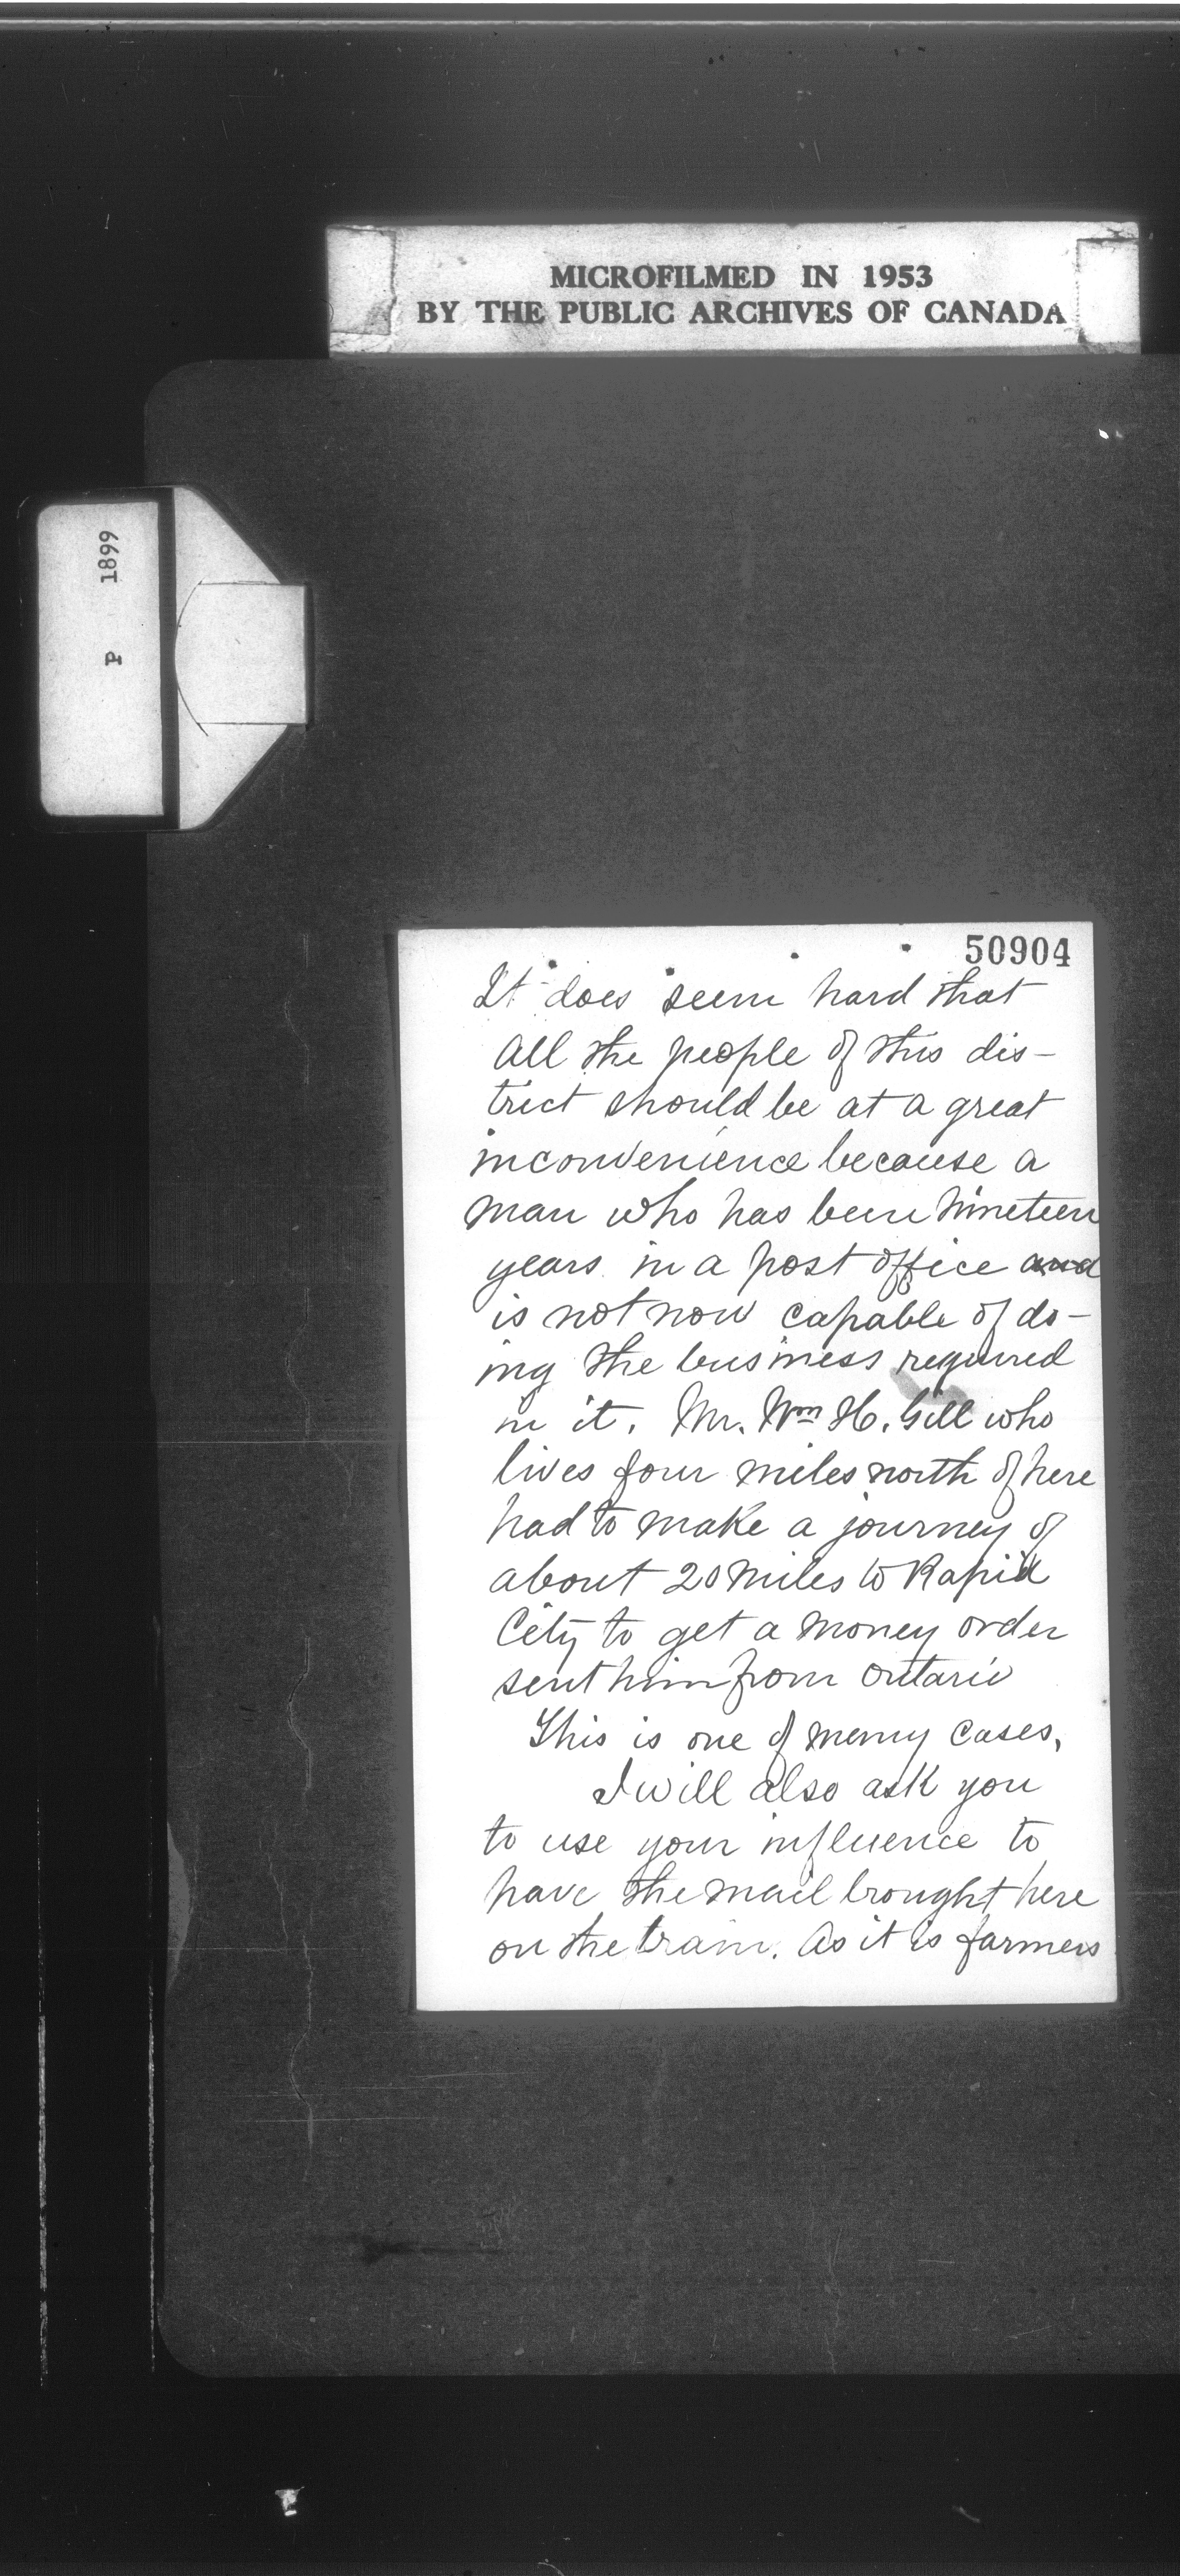 MICROFILMED IN 1953
BY THE PUBLIC ARCHIVES OF CANADA
P 1899
50904
It does seem hard that
all the people of this dis-
trict should be at a great
inconvenience because a
man who has been nineteen
years in a post office and
is not now capable of do-
ing the business required
in it. Mr. Wm H. Gill who
lives four miles north of here
had to make a journey of
about 20 miles to Rapid
City to get a money order
sent him from Ontario
This is one of menny cases.
I will also ask you
to use your influence to
have the mail brought here
on the train. As it is farmers